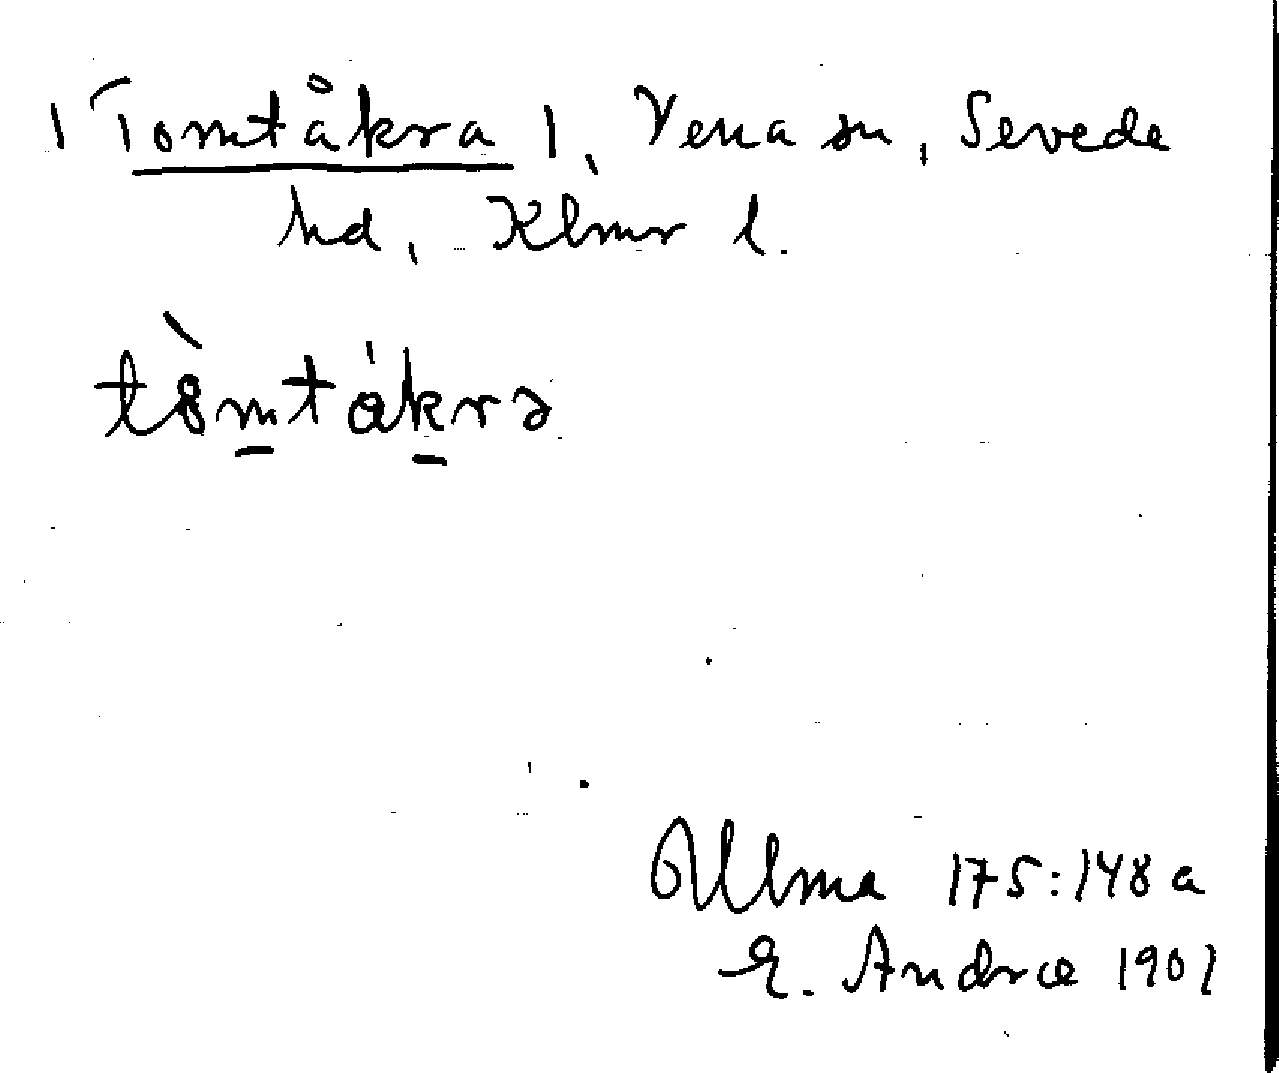 | Tomtåkra |, Vena sn, Sevede
hd, Klmr l.
tomtåkra
Ulma 175:148 a
E. Andræ 1901